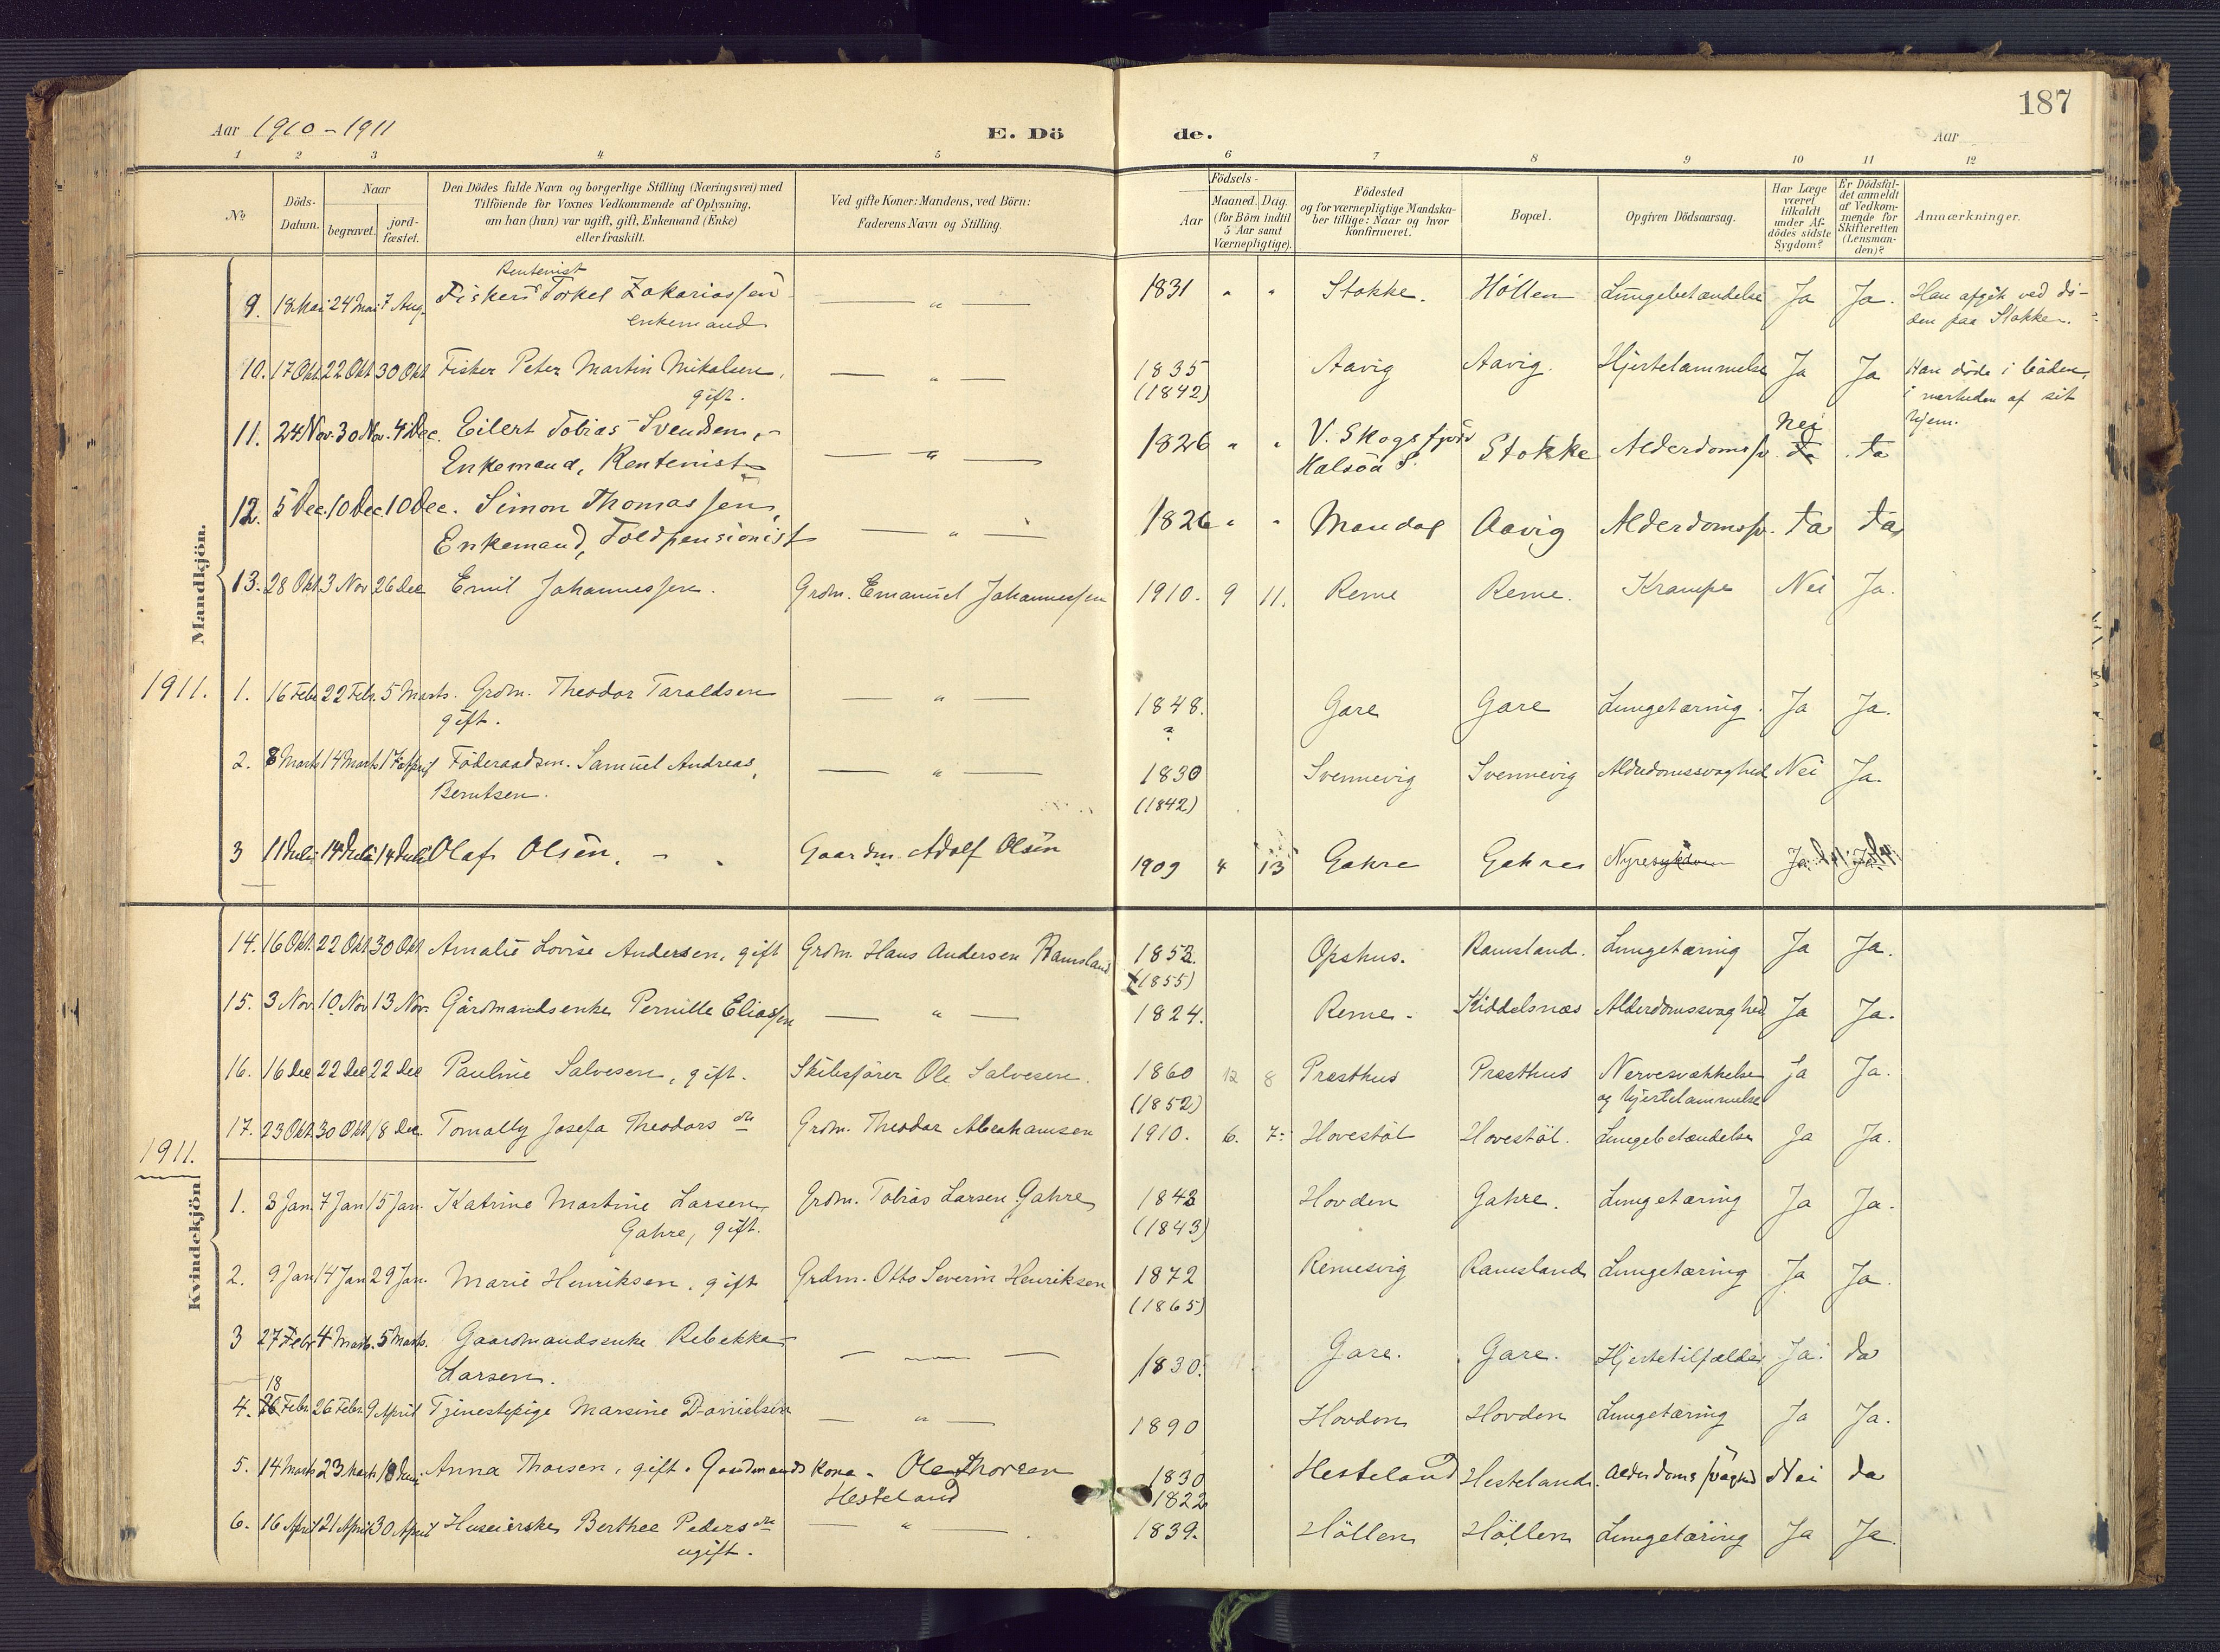 187
Aar 1910-1911
E. Dö de.
Aar
1 2 3 4 5 6 7 8 9 10 11 12
No
Döds-Datum.
Naar
begravet.
jord-fæstet.
Den Dödes fulde Navn og borgerlige Stilling (Næringsvei) med
Tilföiende for Voxnes Vedkommende af Oplysning,
om han (hun) var ugift, gift, Enkemand (Enke)
eller fraskilt.
Ved gifte Koner: Mandens, ved Börn:
Faderens Navn og Stilling.
Födsels-
Aar
Maaned. Dag.
(for Börn indtil
5 Aar samt
Værnepligtige).
Födested
og for værnepligtige Mandska-
ber tillige: Naar og hvor
konfirmeret.
Bopæl.
Opgiven Dödsaarsag.
Har Læge
været
tilkaldt
under Af-
dödes sidste
Sygdom?
Er Dödsfal-
det anmeldt
af Vedkom-
mende for
Skifteretten
(Lensman-
den)?
Anmærkninger.
Mandkjön.
Rentenist
9. 18 Mai 24 Mai 7 Aug. Fisker Torkel Zakariassen — " — 1831 " " Stokke. Höllen Lungebetændelse Ja Ja. Han afgik ved dö-
enkemand den paa Stokke.
10. 17 Okt 22 Okt 30 Okt Fisker Peter Martin Mikalsen, — " — 1835 Aavig Aavig. Hjertelammelse Ja Ja Han döde i båden,
gift. (1842) i nærheden af sit
hjem.
11. 24 Nov. 30 Nov. 4 Dec. Eilert Tobias Svendsen, — " — 1826 " " V. Skogsfjord Stokke Alderdomssv. Nei Ja Ja
Enkemand, Rentenist Halsaa S.
12. 5 Dec. 10 Dec. 10 Dec. Simon Thomassen, — " — 1826 " " Mandal Aavig Alderdomssv. Ja Ja
Enkemand, Toldpensionist
13. 28 Okt 3 Nov 26 Dec Emil Johannessen. Grdm. Emanuel Johannessen 1910. 9 11. Reme Reme. Krampe Nei Ja.
1911. 1. 16 Febr 22 Febr. 5 Marts. Grdm. Theodor Taraldsen — " — 1848. Gare Gare Lungetæring. Ja Ja.
gift. ?
2. 8 Marts 14 Marts 17 April Föderaadsm. Samuel Andreas — " — 1830 Svennevig Svennevig Alderdomssvaghed Nei Ja.
Berntsen. (1842)
3 11 Juli 14 Juli 14 Juli Olaf Olsen. Gaardm. Adolf Olsen 1909 4 13 Gahre Gahre Nyresygdom Ja Ja
Kvindekjön
14. 16 Okt. 22 Okt 30 Okt Amalie Lovise Andersen, gift Grdm. Hans Andersen Ramsland 1852. Opshus. Ramsland. Lungetæring Ja Ja.
(1855)
15. 3 Nov. 10 Nov 13 Nov. Gårdmandsenke Pernille Eliassen — " — 1824. Reme. Kiddelsnæs Alderdomssvaghed Ja Ja.
16. 16 Dec 22 Dec 22 Dec Pauline Salvesen, gift. Skibsförer Ole Salvesen. 1860 12 8 Præsthus Præsthus Nervesvækkelse Ja Ja.
(1852) og hjertelammelse
17. 23 Okt. 30 Okt. 18 Dec. Tomally Josefa Theodorsdtr Grdm. Theodor Abrahamsen 1910. 6. 7. Hovestöl Hovestöl. Lungebetændelse Ja Ja.
1911.
1. 3 Jan. 7 Jan 15 Jan. Katrine Martine Larsen Grdm. Tobias Larsen Gahre 1843 Hovden Gahre. Lungetæring Ja Ja.
Gahre, gift. (1843)
2. 9 Jan 14 Jan 29 Jan. Marie Henriksen, gift Grdm. Otto Severin Henriksen 1872 Remesvig Ramsland Lungetæring Ja Ja
(1865)
3 27 Febr 4 Marts. 5 Marts. Gaardmandsenke Rebekka — — 1830. Gare. Gare. Hjertetilfælde Ja. Ja
Larsen.
18
4. 26 Febr. 26 Febr. 9 April Tjenestepige Marsine Danielsen — " — 1890 Hovden Hovden Lungetæring Ja Ja.
5. 14 Marts 23 Marts Anna Thorsen, gift. Gaardmandskone. Ole Thorsen 1830 Hesteland Hesteland. Alderdomssvaghed Nei Ja
Hesteland 1822
6. 16 April 21 April 30 April Huseierske Berthee Pedersdtr — " — 1839. Höllen Höllen Lungetæring Ja Ja.
ugift.